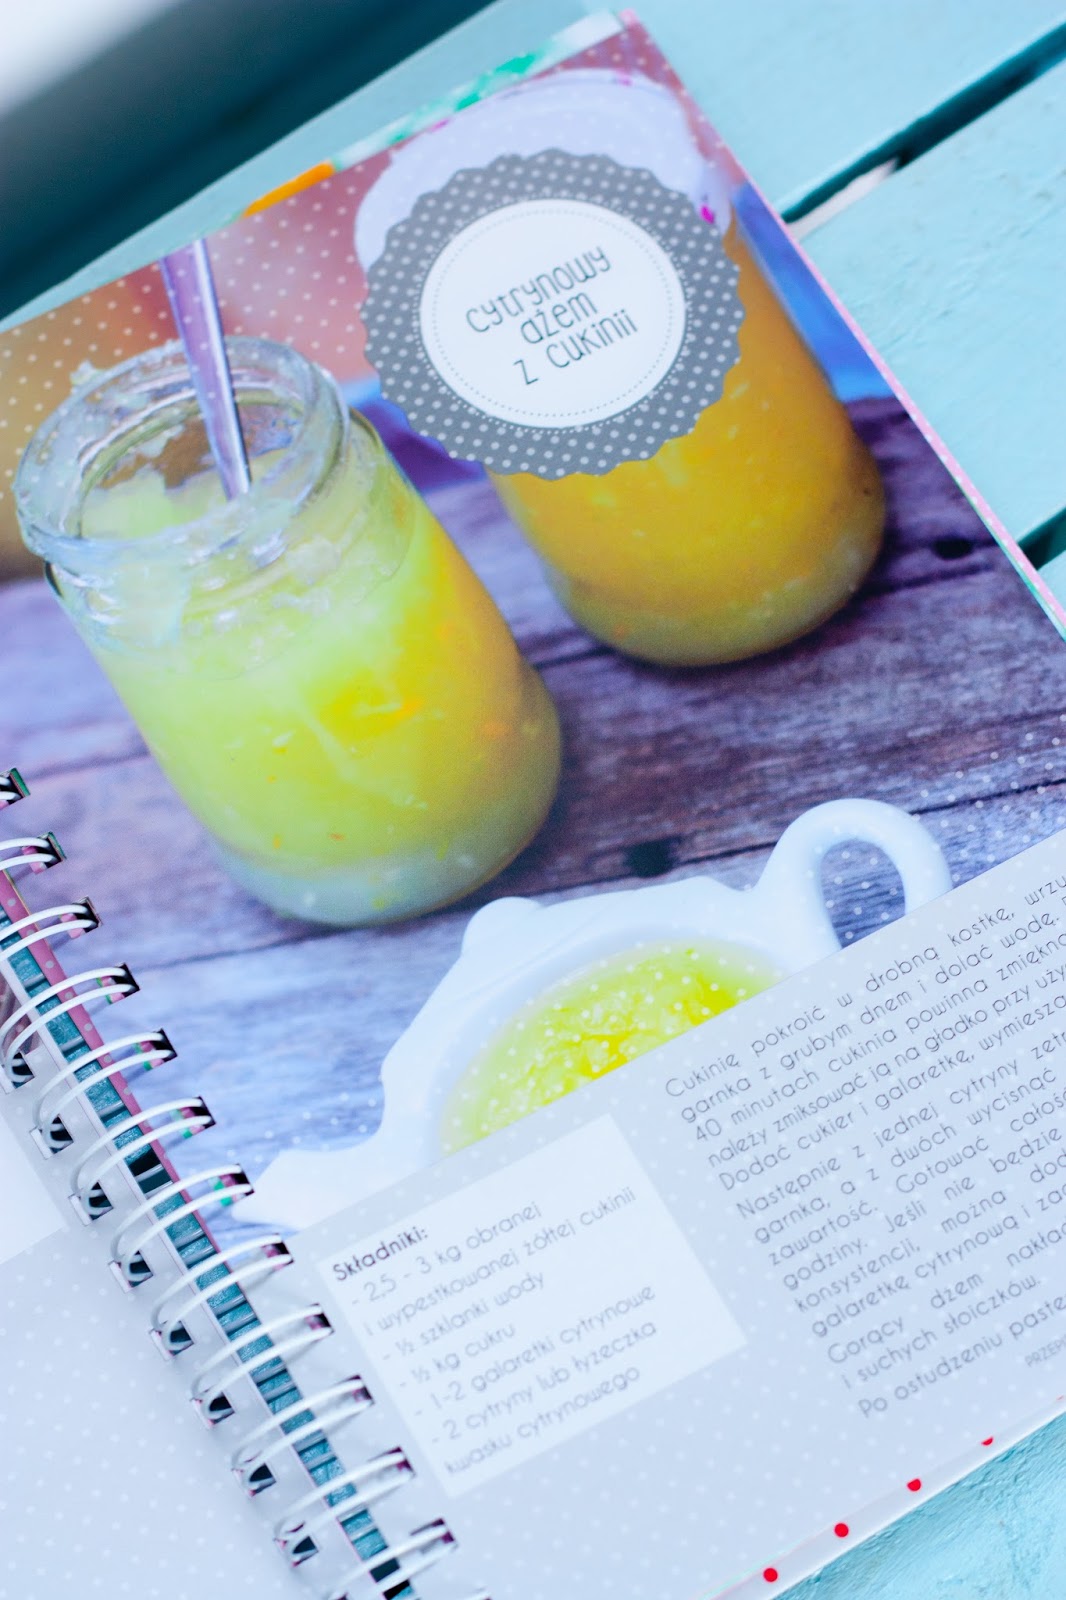 cytrynowy
dżem
z cukinii
Składniki:
- 2,5 - 3 kg obranej
i wypestkowanej żółtej cukinii
- ½ szklanki wody
- ½ kg cukru
- 1-2 galaretki cytrynowe
- 2 cytryny lub łyżeczka
kwasku cytrynowego
Cukinię pokroić w drobną kostkę, wrzu
garnka z grubym dnem i dolać wodę.
40 minutach cukinia powinna zmiękną
należy zmiksować ją na gładko przy uży
Dodać cukier i galaretkę, wymiesza
Następnie z jednej cytryny zetr
garnka, a z dwóch wycisnąć
zawartość. Gotować całoś
godziny. Jeśli nie będzie
konsystencji, można dod
galaretkę cytrynową i zag
Gorący dżem nakła
i suchych słoiczków.
Po ostudzeniu paste
PRZEPI